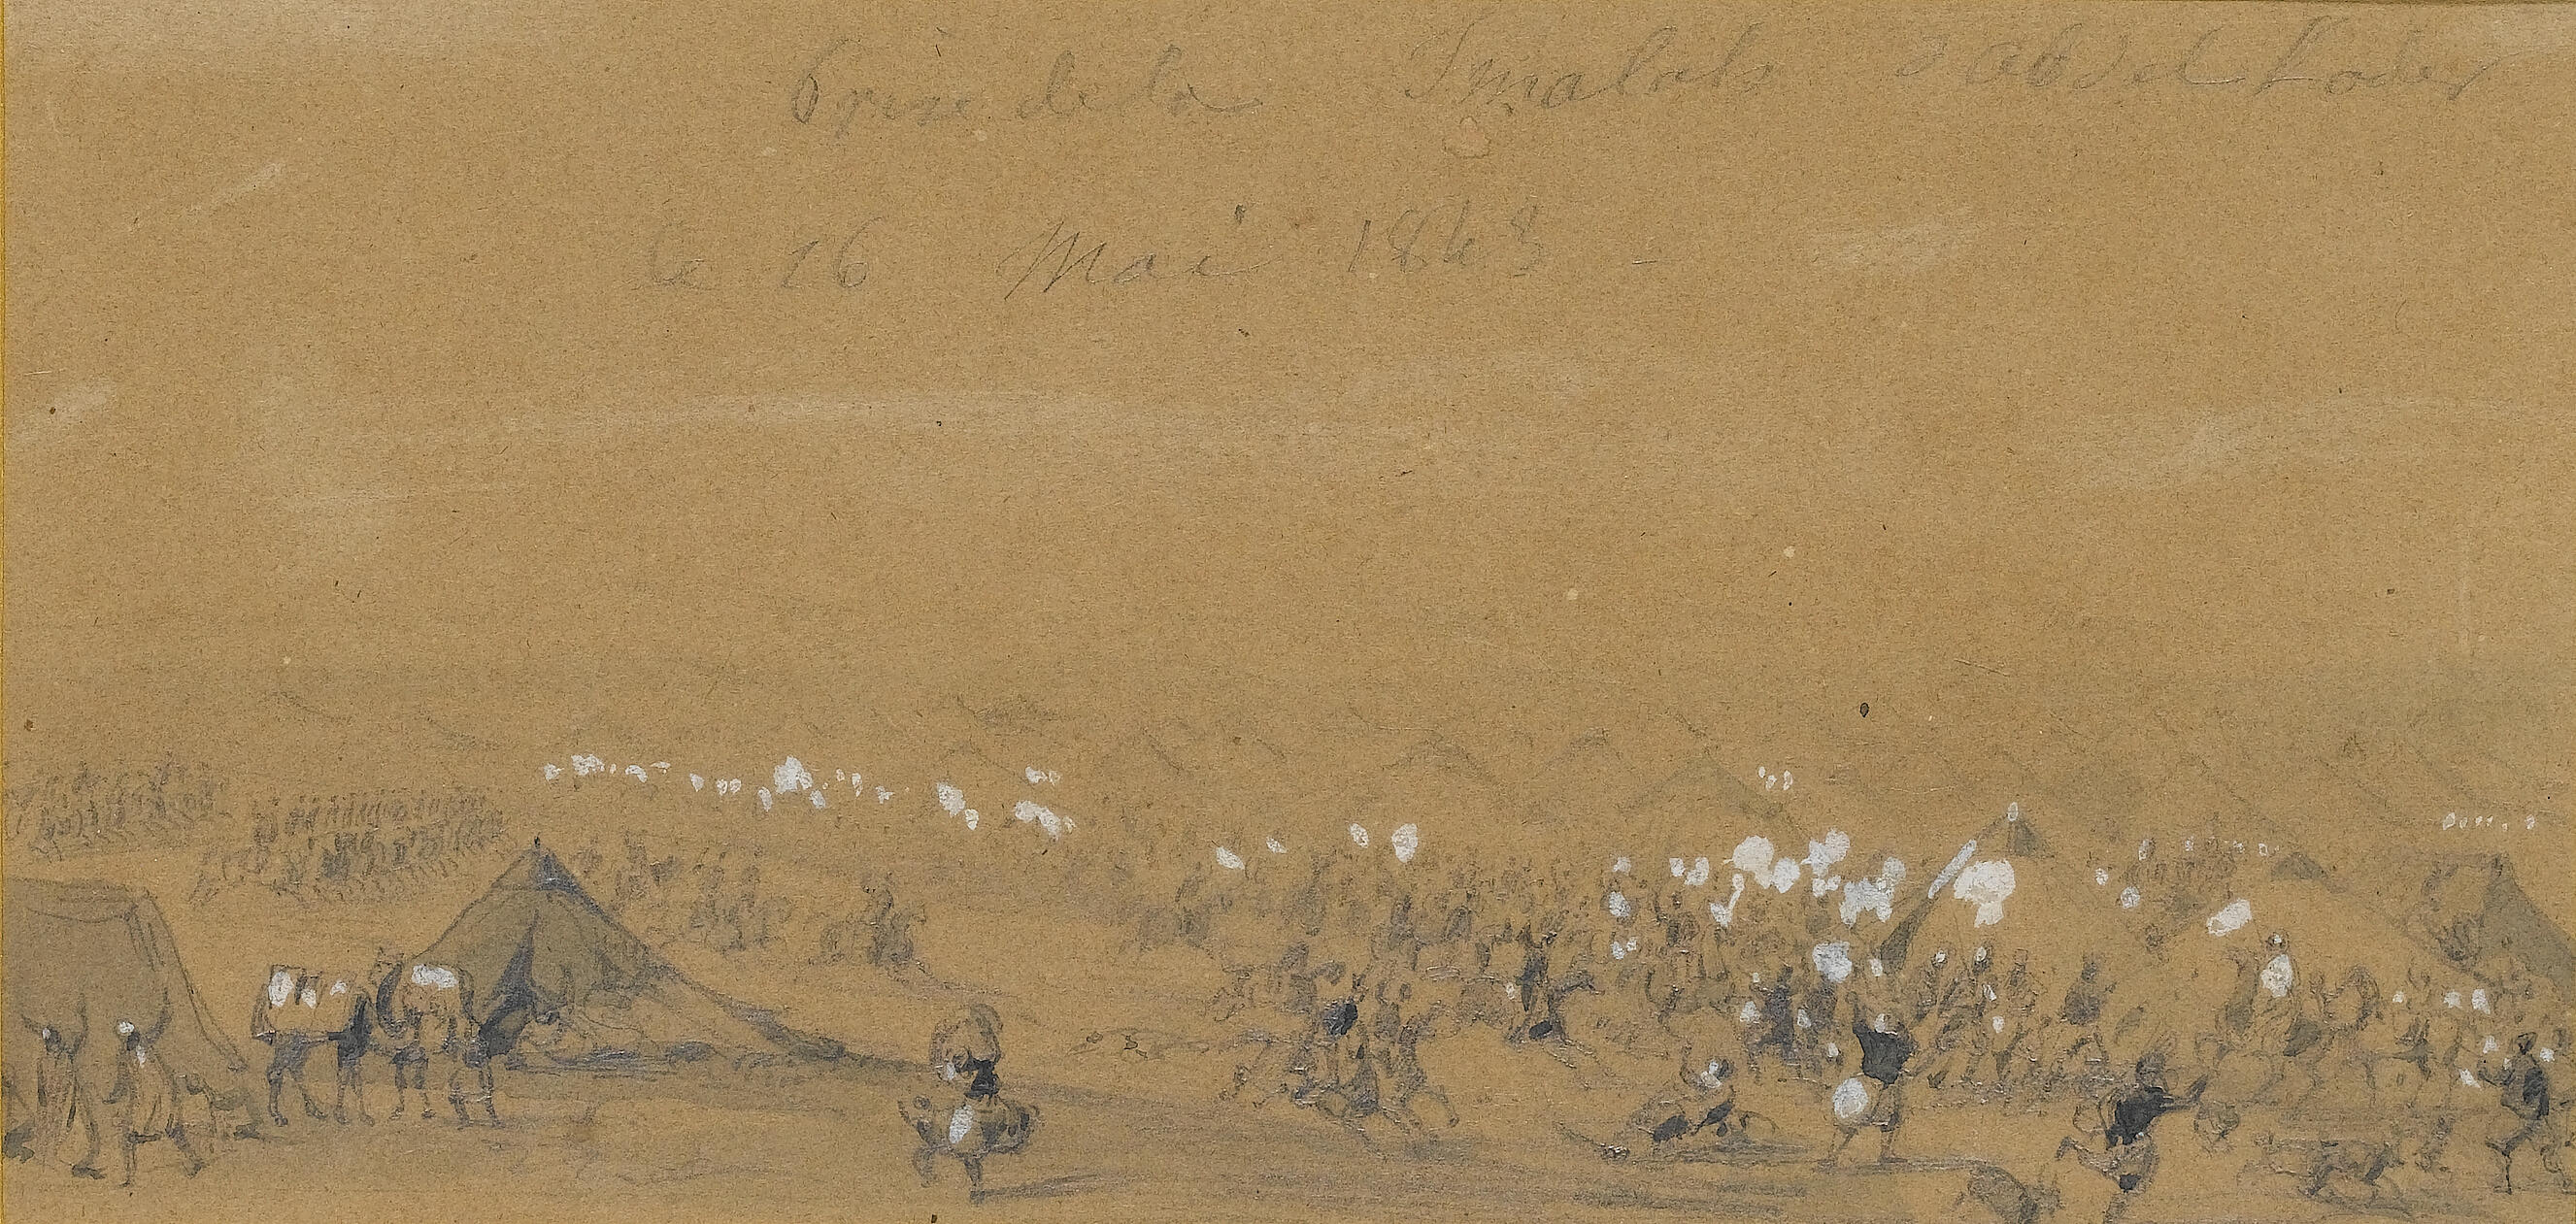 Prise de la Smalah d'abd el Kader
le 16 Mai 1843